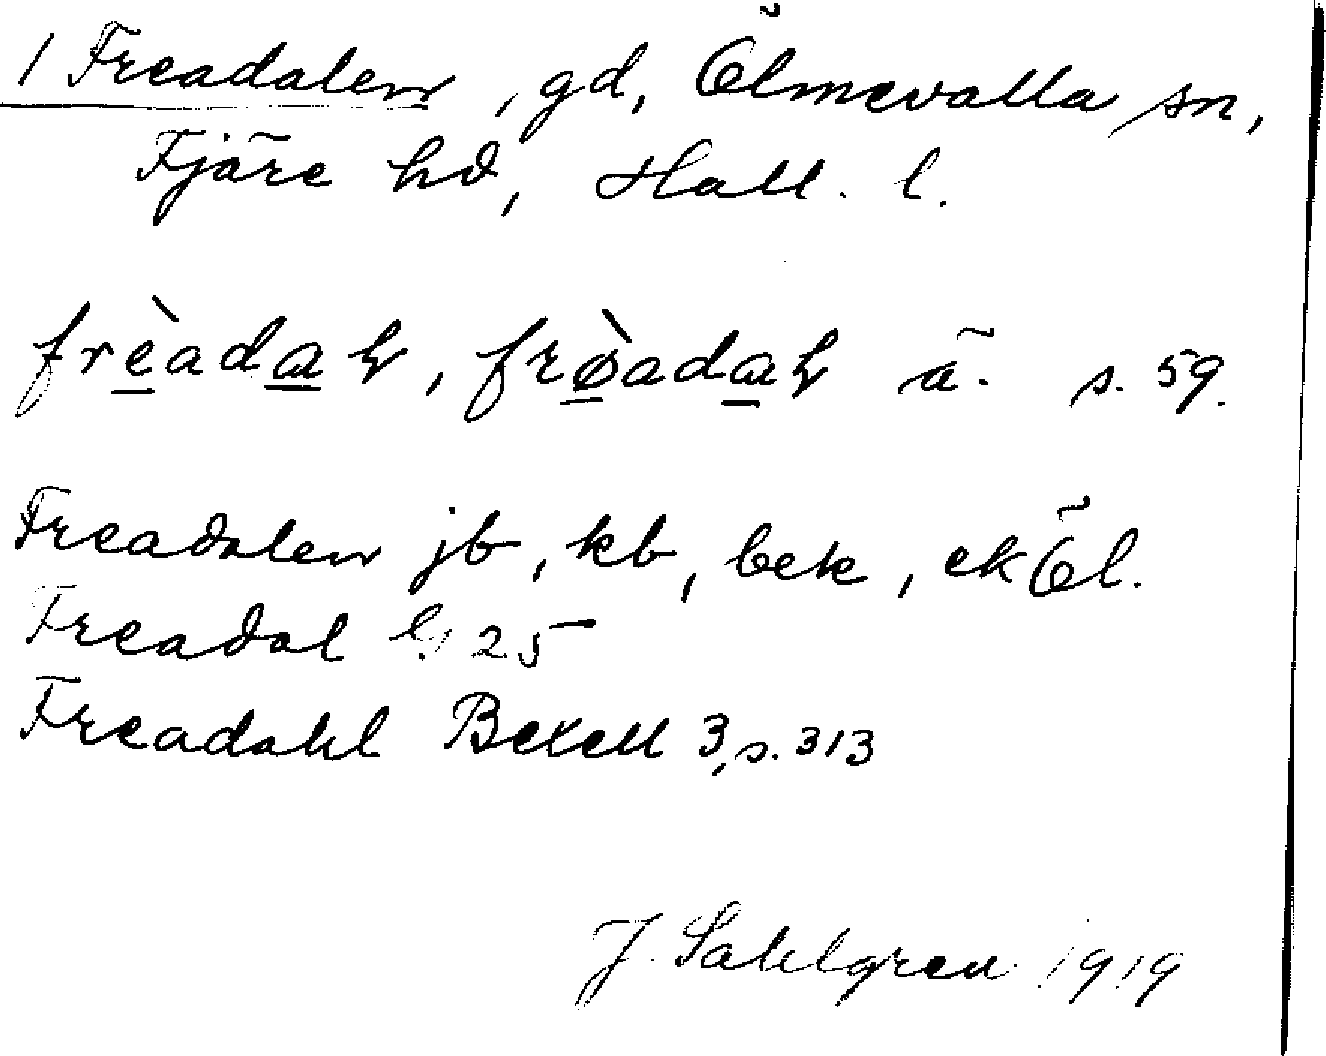 1 Freadalen, gd, Ölmevalla sn,
Fjäre hd, Hall. l.
frèadaɫ, frø̀adaɫ ä. s. 59.
Freadalen jb, kb, bek, ekÖl.
Freadal 25
Freadahl Bexell 3, s. 313
J. Sahlgren 1919